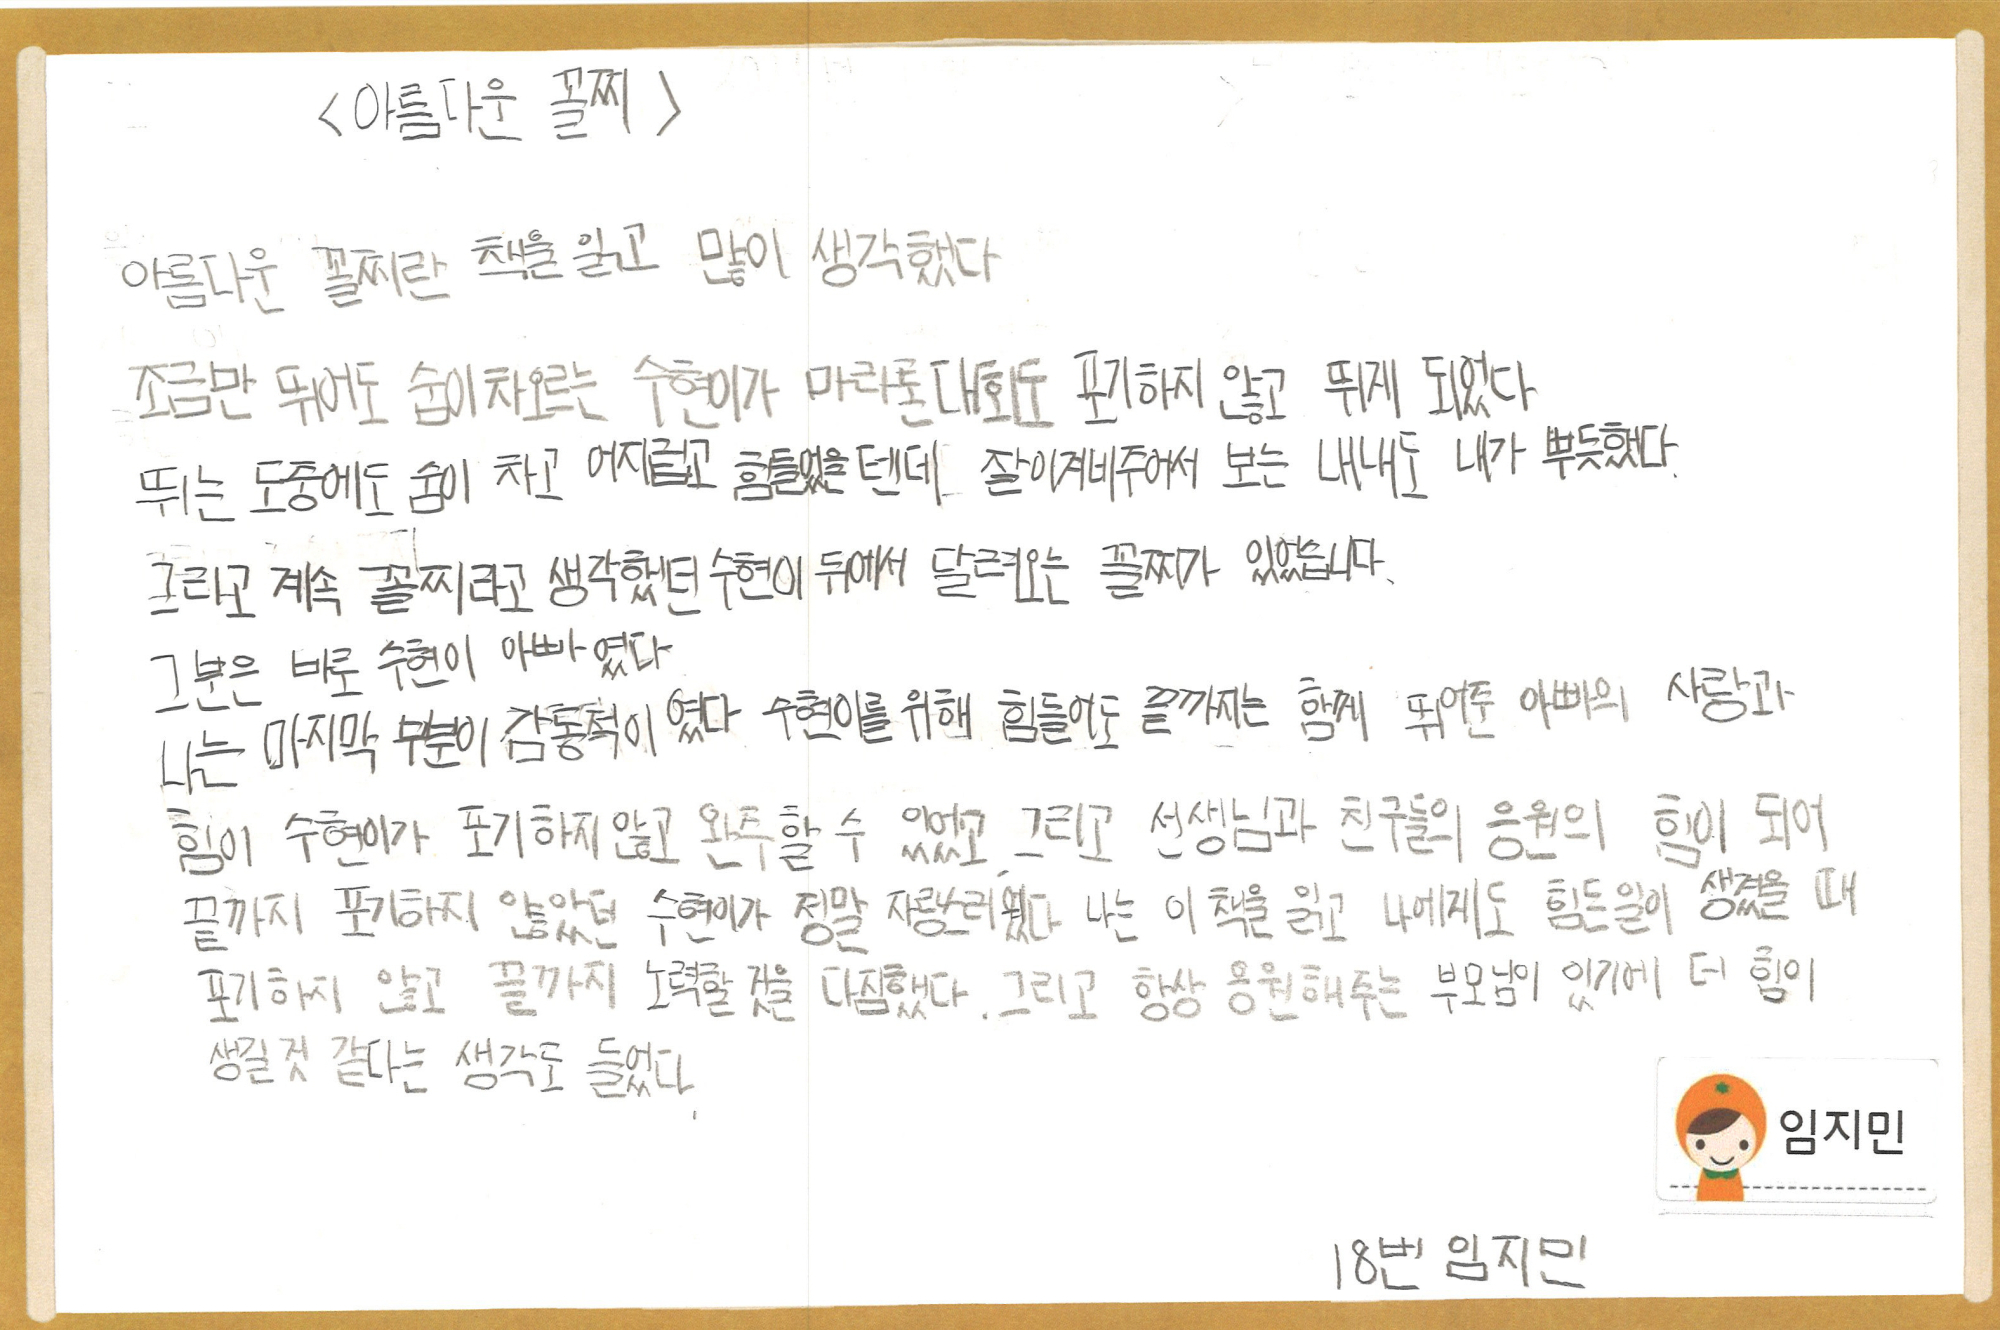 <아름다운 꼴찌>
아름다운 꼴찌란 책을 읽고 많이 생각했다
조금만 뛰어도 숨이차오르는 수현이가 마라톤대회도 포기하지 않고 뛰게 되었다
뛰는 도중에도 숨이 차고 어지럽고 힘들었을 텐데 잘이겨내주어서 보는 내내도 내가 뿌듯했다.
그리고 계속 꼴찌라고 생각했던 수현이 뒤에서 달려오는 꼴찌가 있었습니다.
그분은 바로 수현이 아빠 였다
나는 마지막 부분이 감동적이 였다 수현이를 위해 힘들어도 끝까지는 함께 뛰어준 아빠의 사랑과
힘이 수현이가 포기하지않고 완주할 수 있었고, 그리고 선생님과 친구들의 응원의 힘이 되어
끝까지 포기하지 않았던 수현이가 정말 자랑스러웠다 나는 이 책을 읽고 나에게도 힘든일이 생겼을 때
포기하지 않고 끝까지 노력할 것을 다짐했다. 그리고 항상 응원해주는 부모님이 있기에 더 힘이
생길것 같다는 생각도 들었다.
임지민
18번 임지민